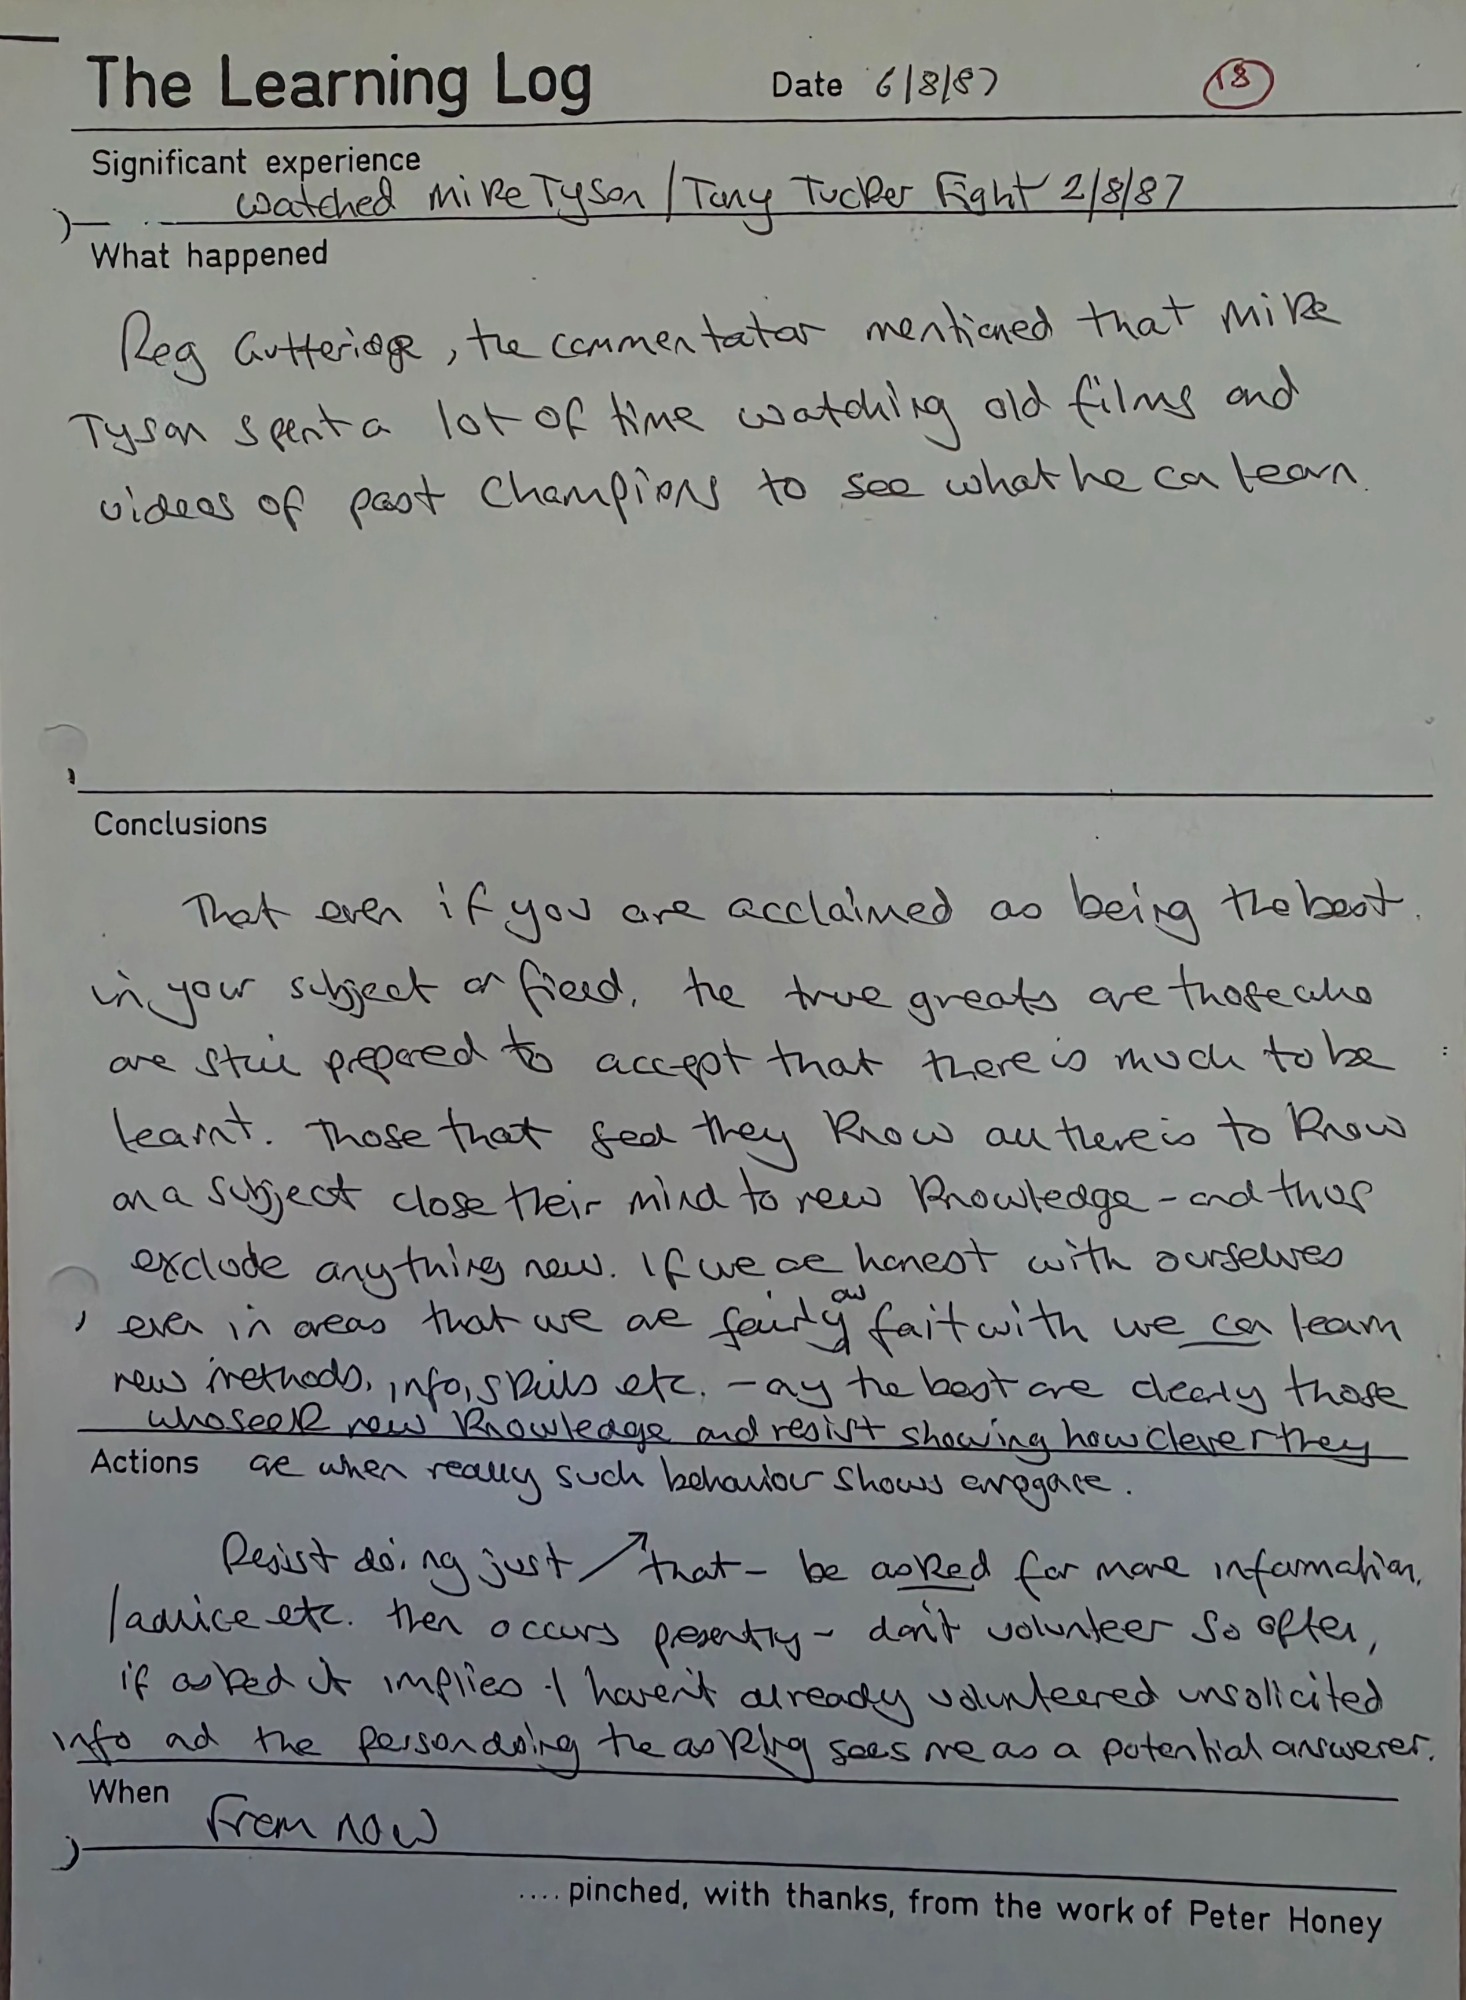 The Learning Log Date 6/8/87 18
Significant experience
Watched Mike Tyson / Tony Tucker Fight 2/8/87
What happened
Reg Gutteridge, the commentator mentioned that Mike
Tyson spent a lot of time watching old films and
videos of past champions to see what he can learn.
Conclusions
That even if you are acclaimed as being the best
in your subject or field, the true greats are those who
are still prepared to accept that there is much to be
learnt. Those that feel they know all there is to know
on a subject close their mind to new knowledge - and thus
exclude anything new. If we are honest with ourselves
even in areas that we are fairly au fait with we can learn
new methods, info, skills etc. - the best are clearly those
who seek new knowledge and resist showing how clever they
Actions are when really such behaviour shows arrogance.
Resist doing just ↗ that - be asked for more information,
/advice etc. then occurs presently - don't volunteer so often,
if asked it implies I haven't already volunteered unsolicited
info and the person doing the asking sees me as a potential answerer.
When
From now
.... pinched, with thanks, from the work of Peter Honey